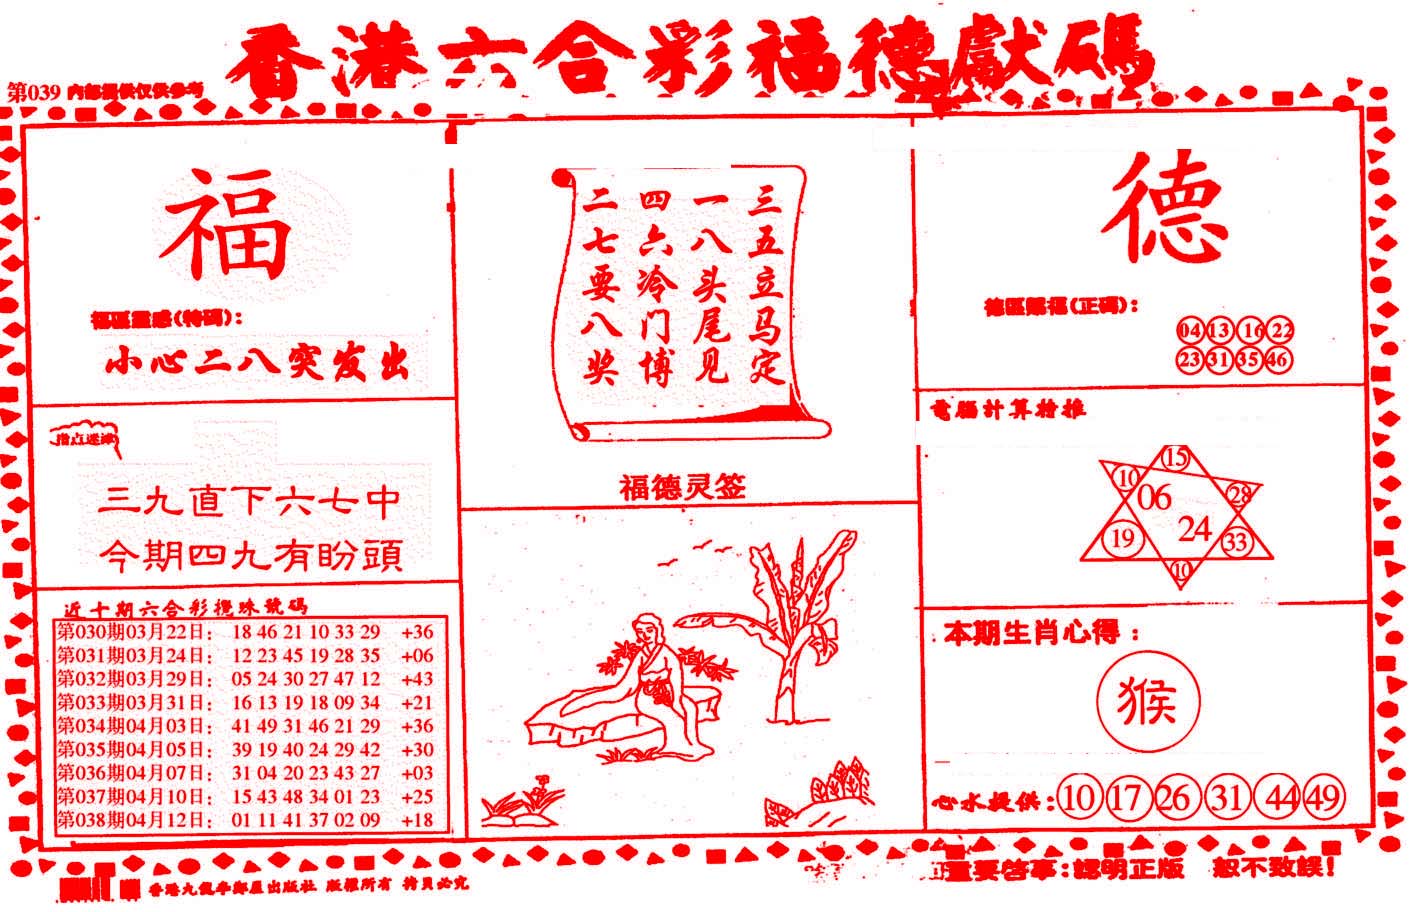 香港六合彩福德獻碼
第039 內部提供仅供参考
福
福區靈感(特碼):
小心二八突发出
指点迷津
三九直下六七中
今期四九有盼頭
近十期六合彩攪珠號碼
第030期03月22日: 18 46 21 10 33 29 +36
第031期03月24日: 12 23 45 19 28 35 +06
第032期03月29日: 05 24 30 27 47 12 +43
第033期03月31日: 16 13 19 18 09 34 +21
第034期04月03日: 41 49 31 46 21 29 +36
第035期04月05日: 39 19 40 24 29 42 +30
第036期04月07日: 31 04 20 23 43 27 +03
第037期04月10日: 15 43 48 34 01 23 +25
第038期04月12日: 01 11 41 37 02 09 +18
三五立马定
一八头尾见
四六冷门博
二七要八奖
福德灵签
德
德區賜福(正码):
04 13 16 22
23 31 35 46
電腦計算特推
15
10
06
28
24
19
33
10
本期生肖心得:
猴
心水提供: 10 17 26 31 44 49
香港九龍 出版社 版權所有 拷貝必究
重要啓事:認明正版 恕不致誤!